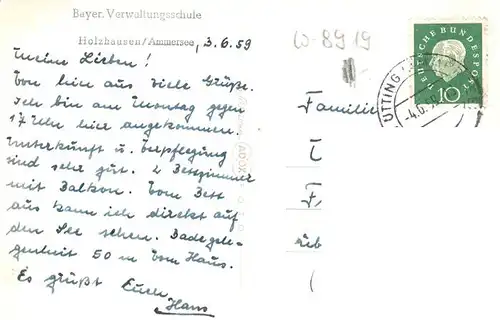 Bayer. Verwaltungsschule
Holzhausen/Ammersee, 3.6.59.
Meine Lieben!
Von hier aus viele Grüße.
Ich bin am Montag gegen
17 Uhr hier angekommen.
Unterkunft u. Verpflegung
sind sehr gut. 2 Bettzimmer
mit Balkon. Vom Bett
aus kann ich direkt auf
den See sehen. Badegele-
genheit 50 m vom Haus.
Es grüßt Euch
Hans
W-8919
DEUTSCHE BUNDESPOST
10
UTTING
-4.6.59
ADOX
Familie